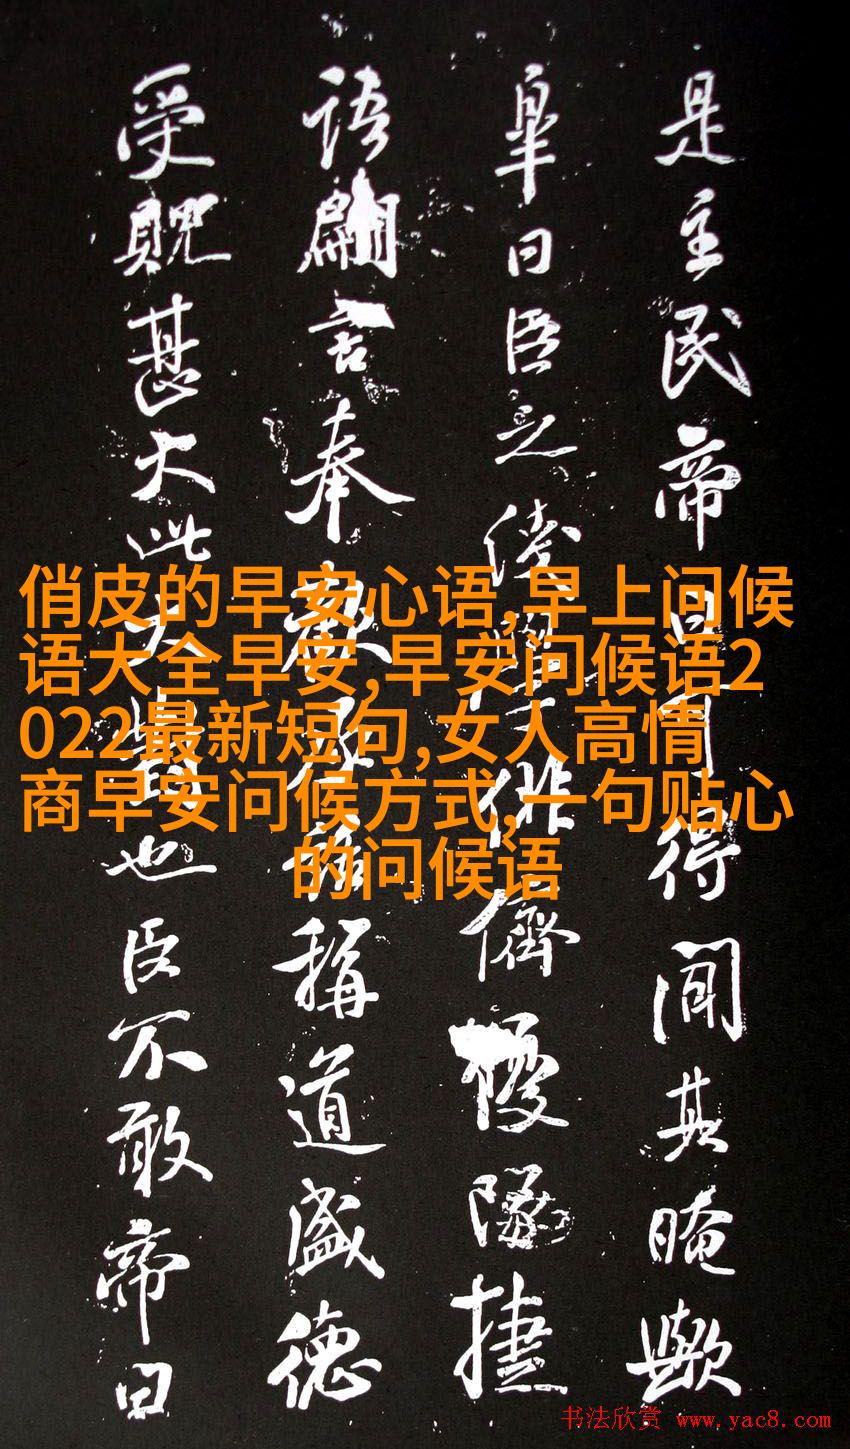 是主民帝曰可得聞其晻歟
皋曰臣之俳儕優隊捷
語言奉稱道盛德
受貺甚大此也臣不敢帝曰
俏皮的早安心语,早上问候
语大全早安,早安问候语2
022最新短句,女人高情
商早安问候方式,一句贴心
的问候语
书法欣赏 www.yac8.com